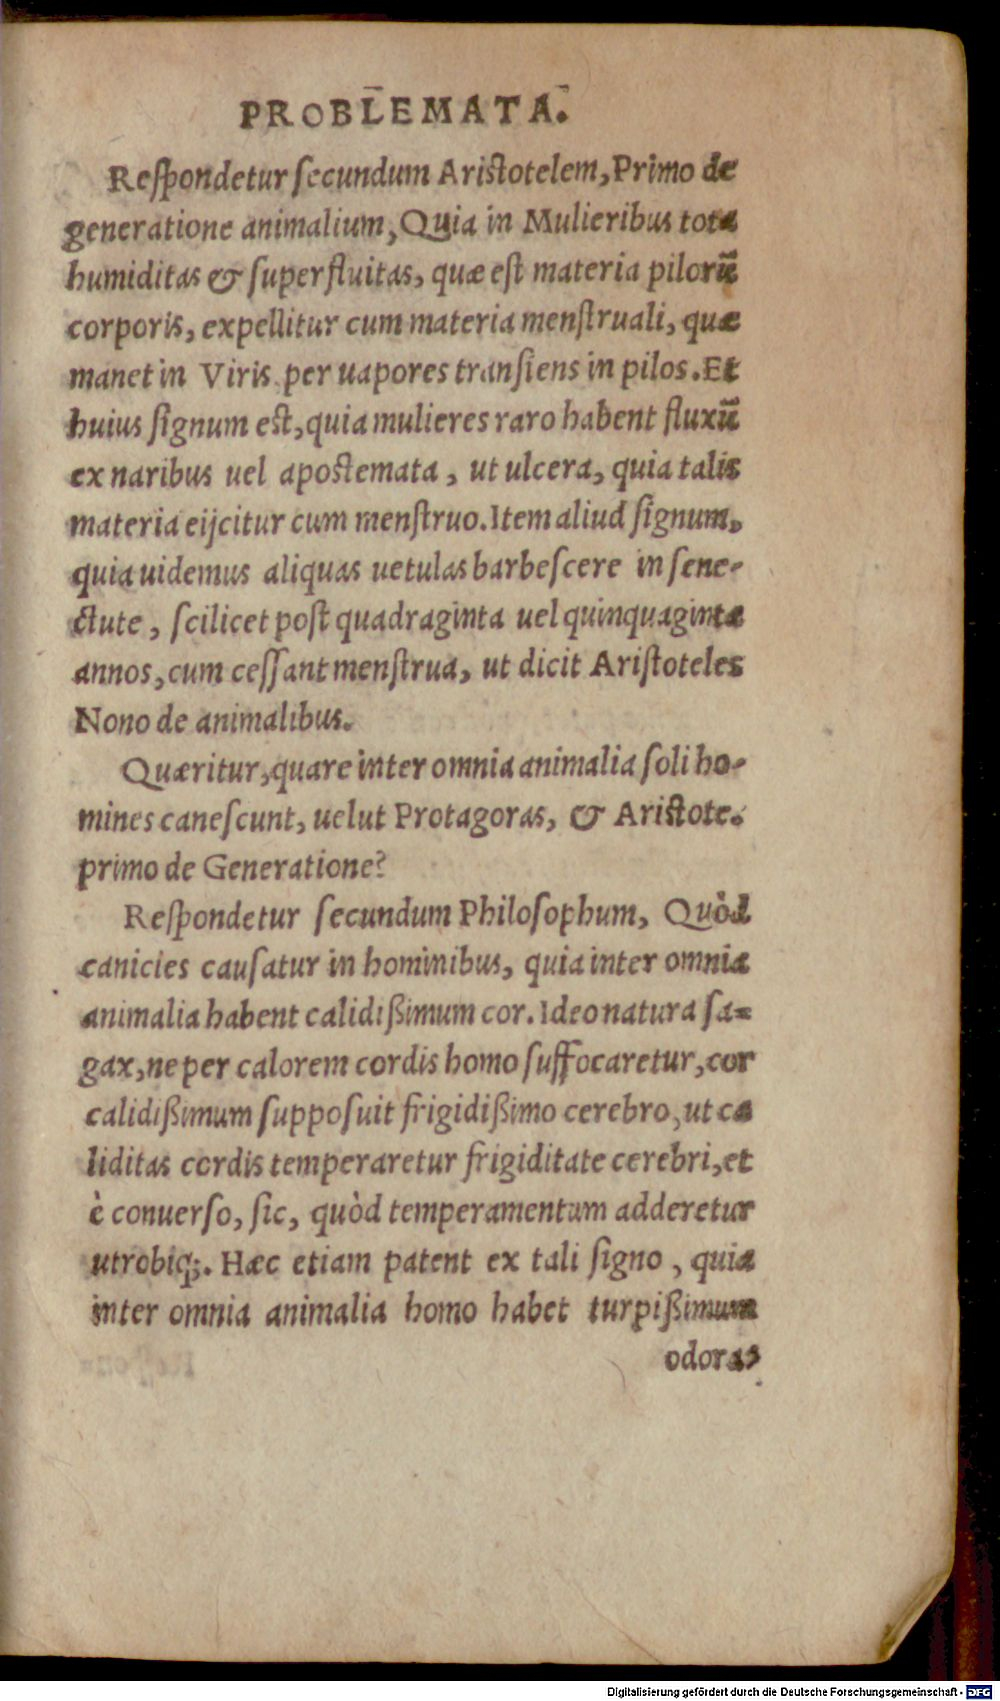 PROBLEMATA.
Respondetur secundum Aristotelem, Primo de
generatione animalium, Quia in Mulieribus tota
humiditas & superfluitas, quæ est materia pilorū
corporis, expellitur cum materia menstruali, quæ
manet in Viris per uapores transiens in pilos. Et
huius signum est, quia mulieres raro habent fluxū
ex naribus uel apostemata, ut ulcera, quia talis
materia eijcitur cum menstruo. Item aliud signum,
quia uidemus aliquas uetulas barbescere in sene-
ctute, scilicet post quadraginta uel quinquaginta
annos, cum cessant menstrua, ut dicit Aristoteles
Nono de animalibus.
Quæritur, quare inter omnia animalia soli ho-
mines canescunt, uelut Protagoras, & Aristote.
primo de Generatione?
Respondetur secundum Philosophum, Quòd
canicies causatur in hominibus, quia inter omnia
animalia habent calidißimum cor. Ideo natura sa-
gax, ne per calorem cordis homo suffocaretur, cor
calidißimum supposuit frigidißimo cerebro, ut ca
liditas cordis temperaretur frigiditate cerebri, et
è conuerso, sic, quòd temperamentum adderetur
utrobiq;. Hæc etiam patent ex tali signo, quia
inter omnia animalia homo habet turpißimum
odoras
Digitalisierung gefördert durch die Deutsche Forschungsgemeinschaft - DFG